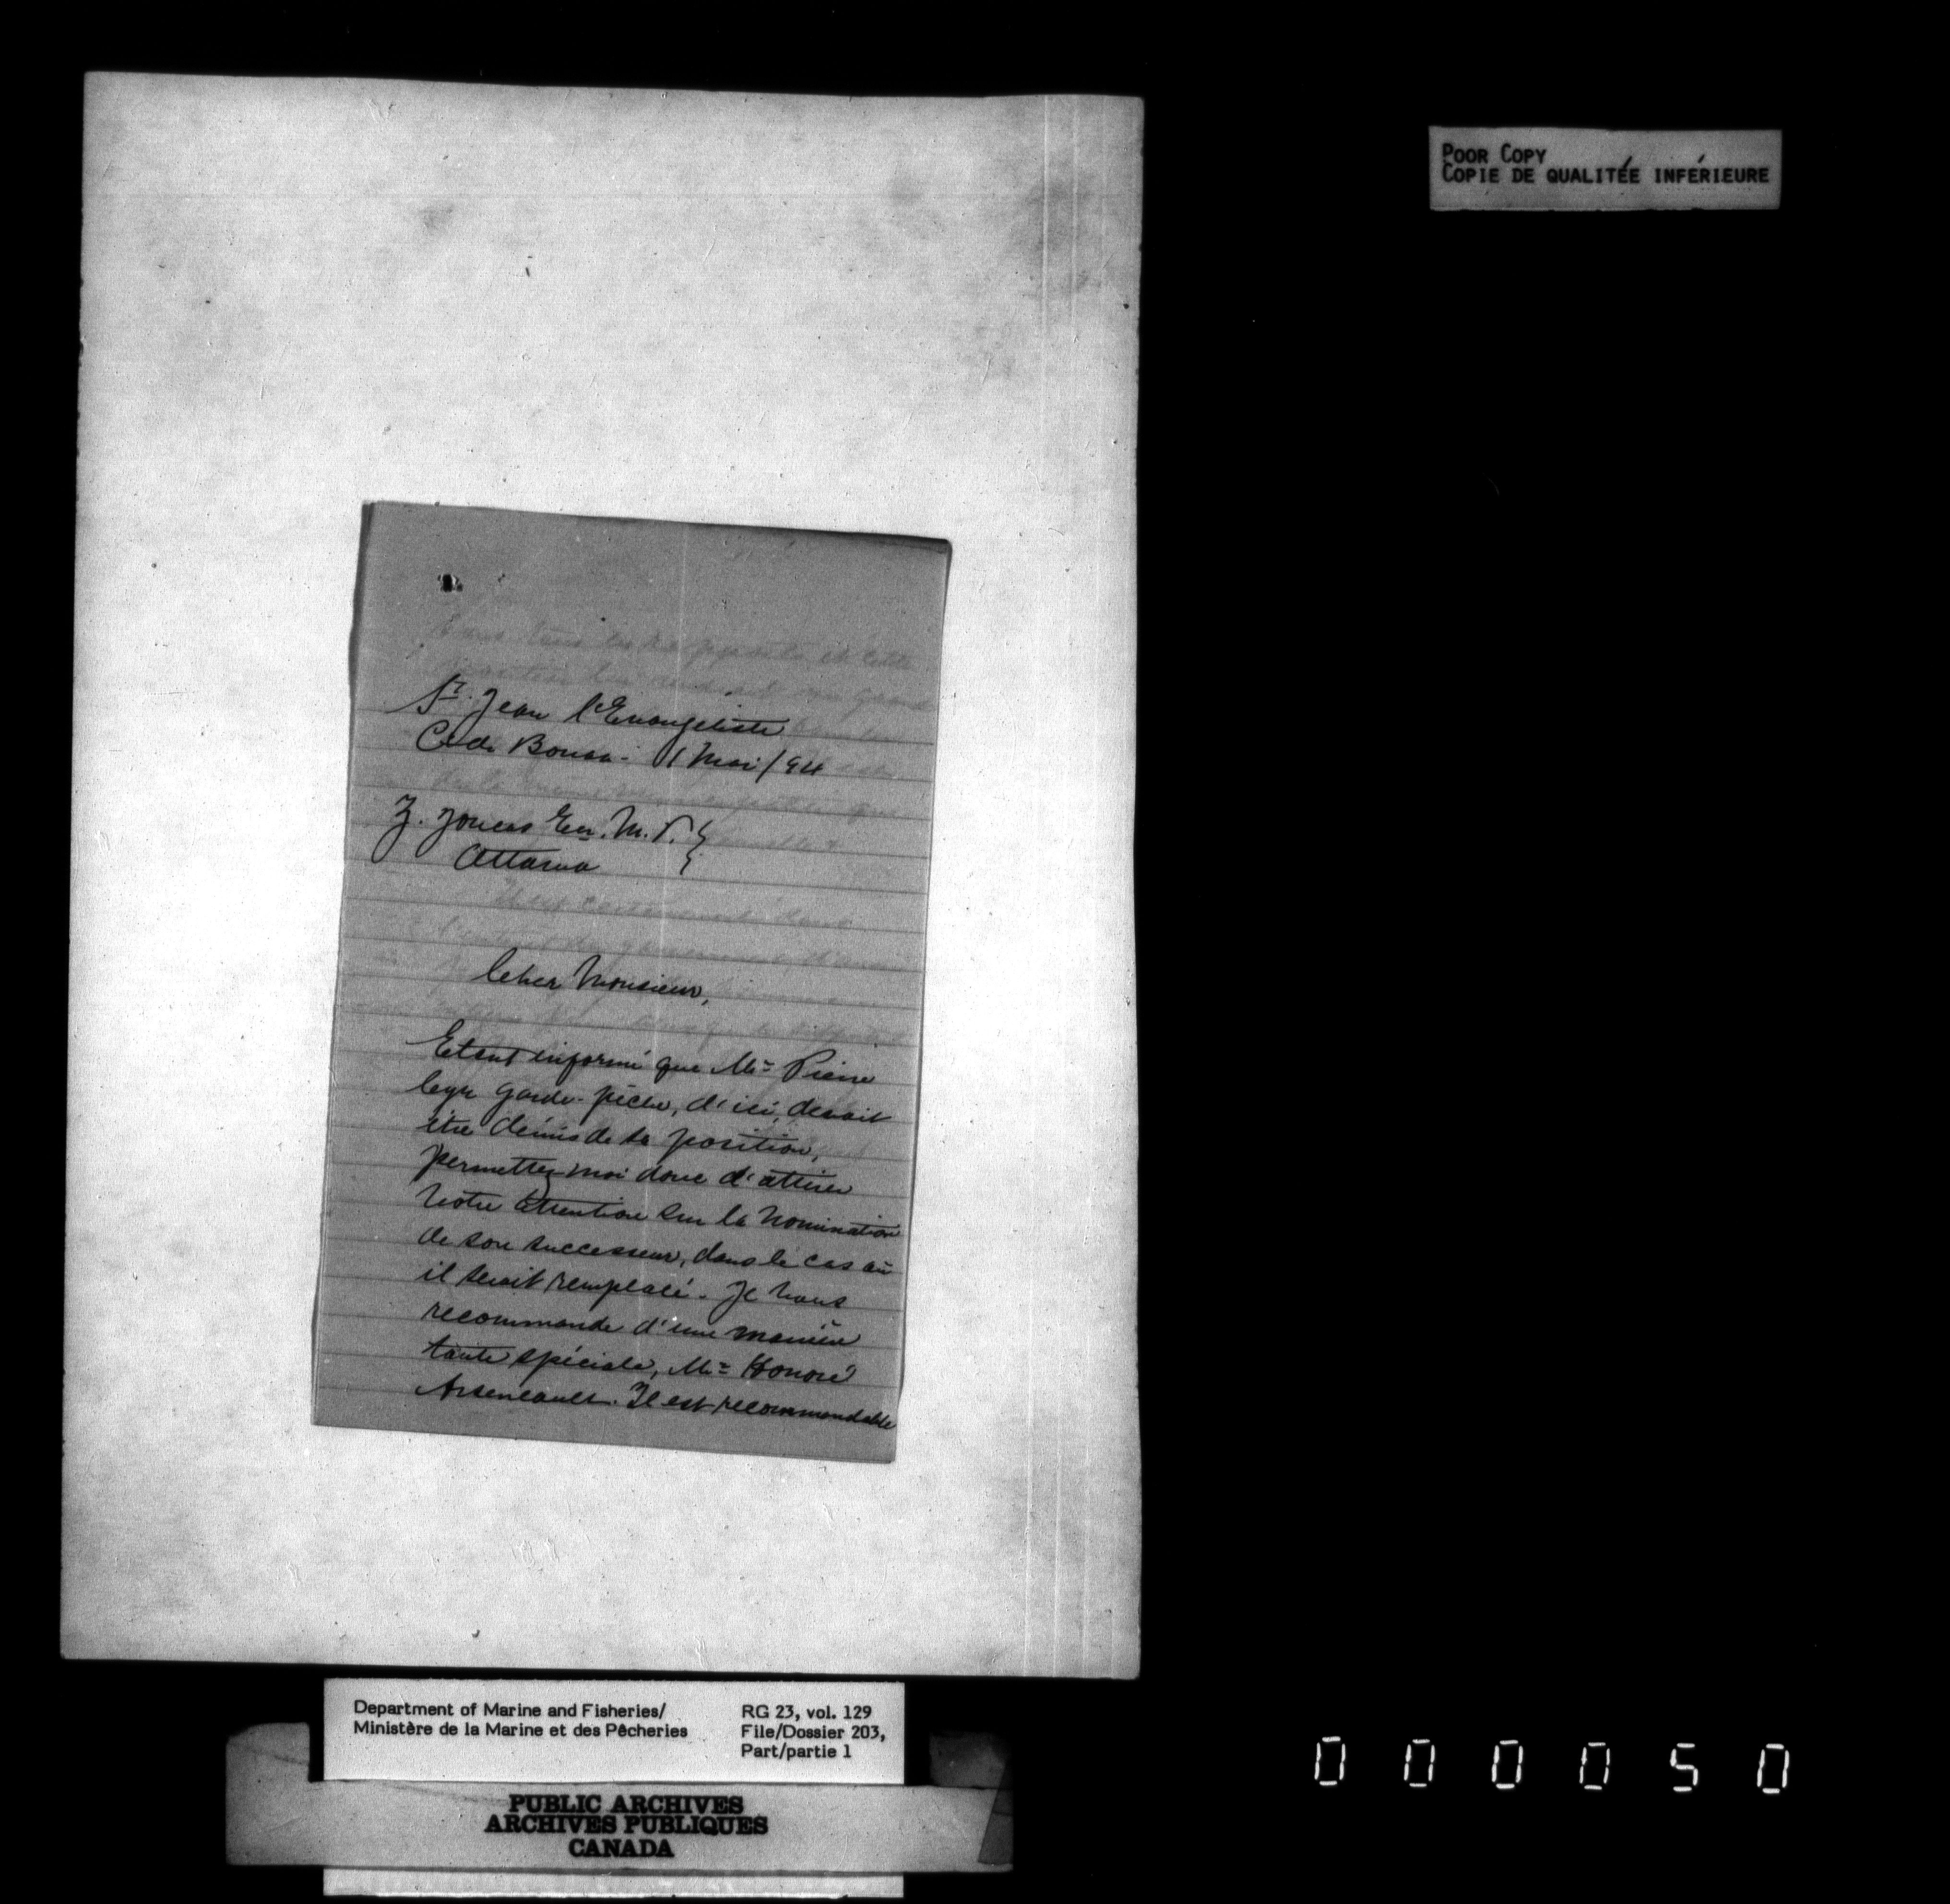 POOR COPY
COPIE DE QUALITÉE INFÉRIEURE
St. Jean l'Evangeliste
Co de Bonav. 1 Mai / 94
Z. Joncas Ecr. M.P.
Ottawa
Cher Monsieur,
Etant informé que Mr Pierre
Cyr garde-pêche, d'ici, devait
être démis de sa position,
permettez moi donc d'attirer
votre attention sur la nomination
de son successeur, dans le cas où
il serait remplacé. Je vous
recommande d'une manière
toute spéciale, Mr Honoré
Arseneault. Il est recommandable
Department of Marine and Fisheries/
Ministère de la Marine et des Pêcheries
RG 23, vol. 129
File/Dossier 203,
Part/partie 1
PUBLIC ARCHIVES
ARCHIVES PUBLIQUES
CANADA
000050